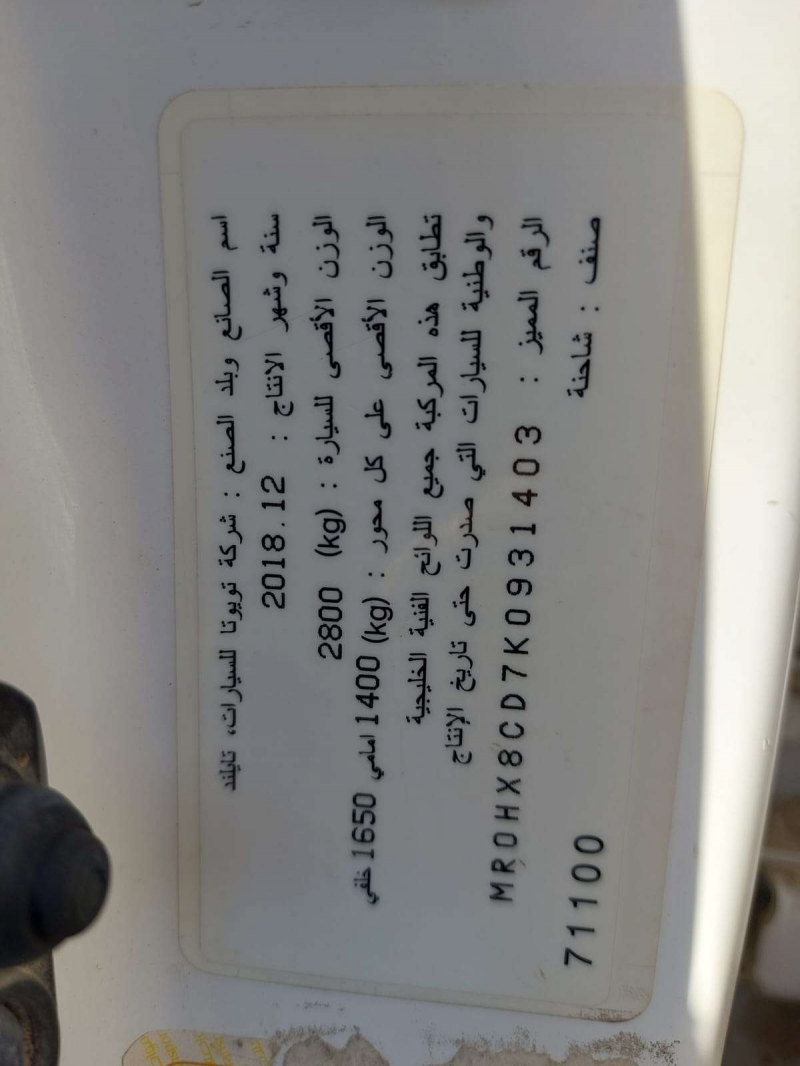 اسم الصانع وبلد الصنع : شركة تويوتا للسيارات، تايلند
سنة وشهر الانتاج : 2018.12
الوزن الأقصى للسيارة : (kg) 2800
الوزن الأقصى على كل محور : (kg) 1400 امامي 1650 خلفي
تطابق هذه المركبة جميع اللوائح الفنية الخليجية
والوطنية للسيارات التي صدرت حتى تاريخ الإنتاج
الرقم المميز : MR0HX8CD7K0931403
صنف : شاحنة
71100